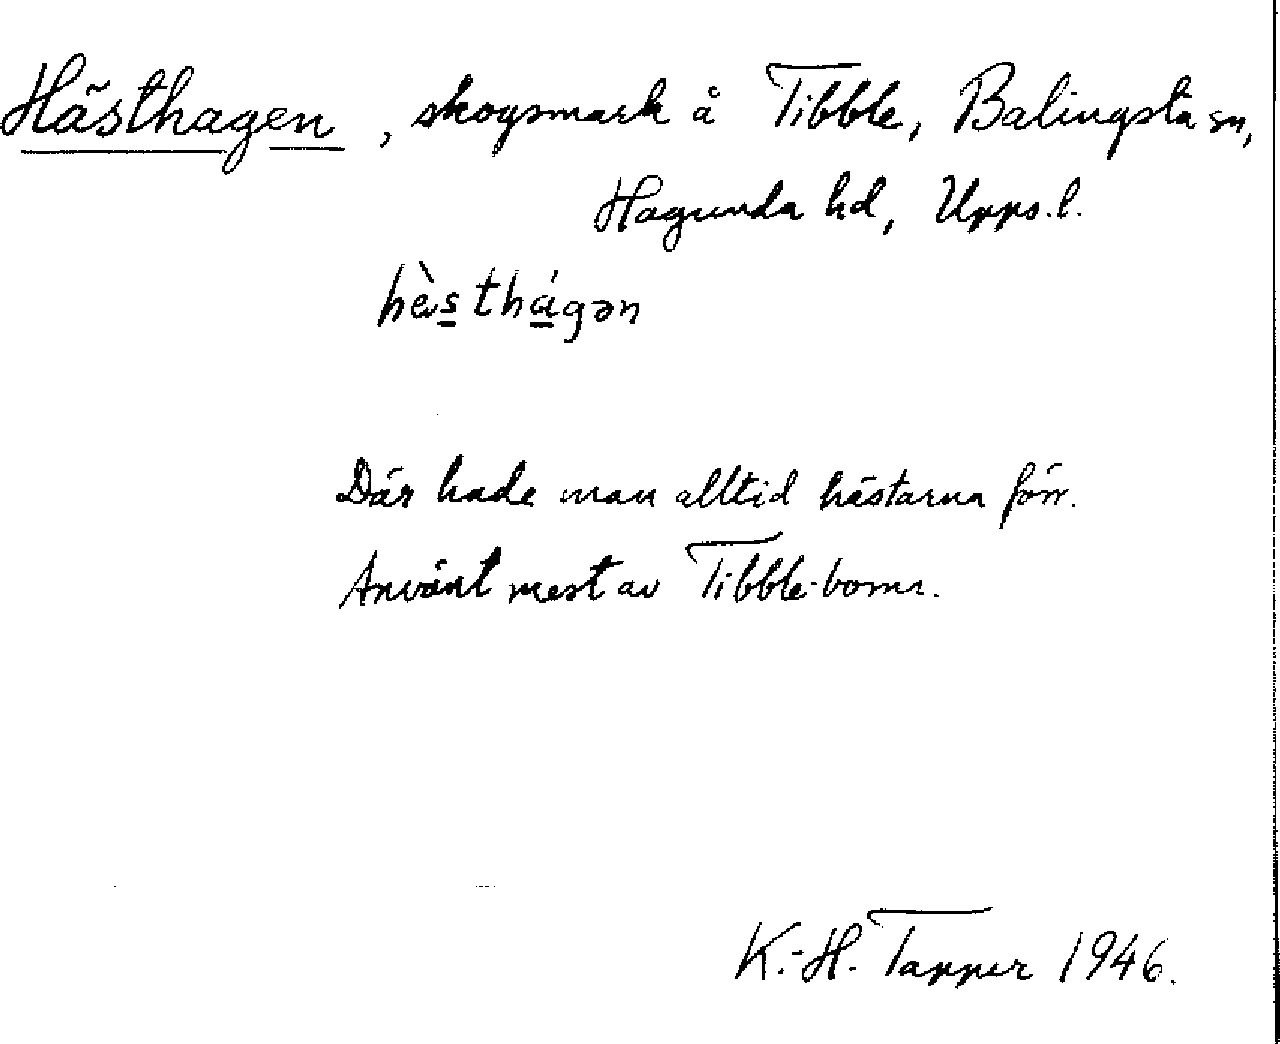 Hästhagen, skogsmark å Tibble, Balingsta sn,
Hagunda hd, Upps.l.
hè̀sthágən
Där hade man alltid hästarna förr.
Använt mest av Tibble-borna.
K.-H. Tapper 1946.